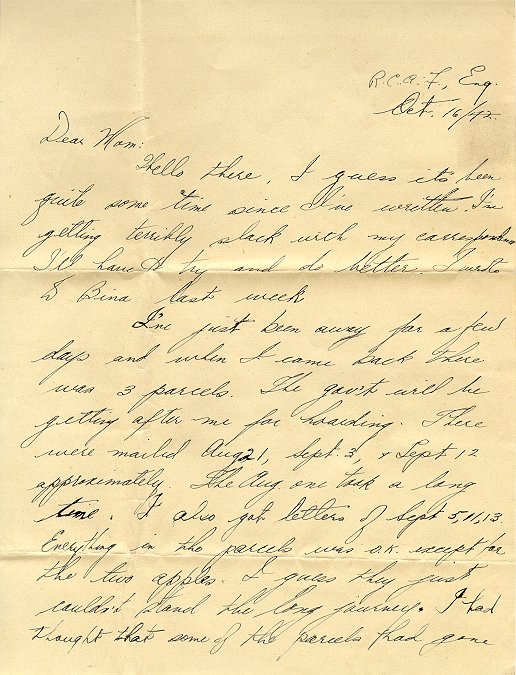 R.C.A.F., Eng.
Oct. 16/42.
Dear Mom:
Hello there, I guess it's been
quite some time since I've written. I'm
getting terribly slack with my correspondence
I'll have to try and do better. I wrote
to Bina last week
I've just been away for a few
days and when I came back there
was 3 parcels. The gov't will be
getting after me for hoarding. There
were mailed Aug 21, Sept. 3, + Sept 12
approximately. The Aug one took a long
time. I also got letters of Sept 5, 11, 13.
Everything in the parcels was o.k. except for
the two apples. I guess they just
couldn't stand the long journey. I had
thought that some of the parcels had gone